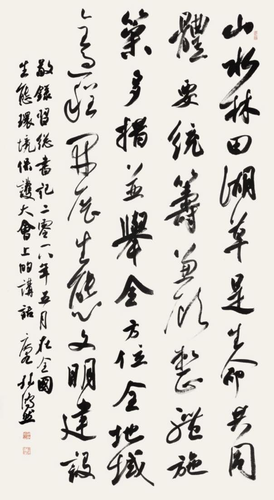 山水林田湖草是生命共同
體要統籌兼顧整體施
策多措並舉全方位全地域
全過程開展生態文明建設
敬錄習總書記二零一八年五月在全國
生態環境保護大會上的講話